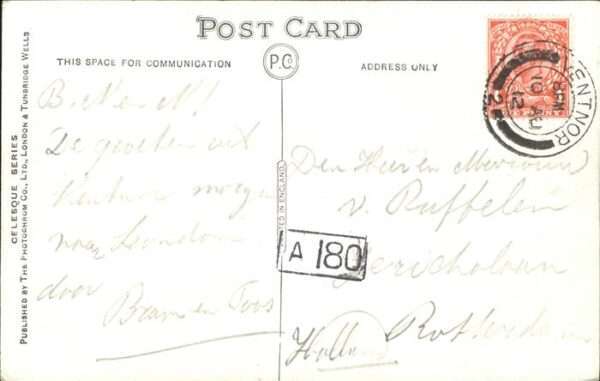 POST CARD
THIS SPACE FOR COMMUNICATION
P.C.
ADDRESS ONLY
CELESQUE SERIES
PUBLISHED BY THE PHOTOCHROM CO., LTD., LONDON & TUNBRIDGE WELLS.
PRINTED IN ENGLAND
VENTNOR
8 PM
10 AU
12
2
B. N en N!
De groeten uit
Ventnor morgen
naar London
door
Bram en Toos
A 180
Den Heeren
v. Ruffelen
Jericholaan
Rotterdam
Holland